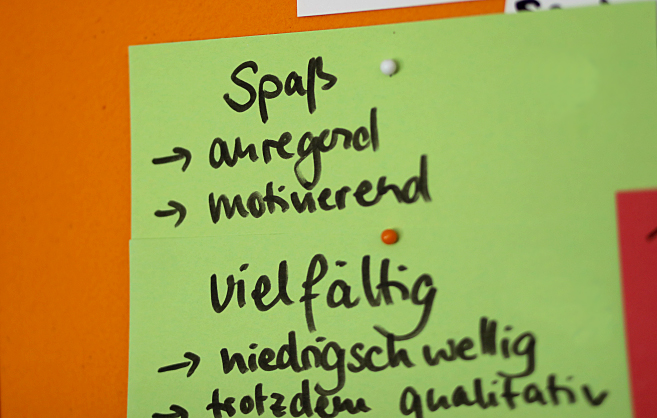 Spaß
→ anregend
→ motivierend
vielfältig
→ niedrigschwellig
→ trotzdem qualitativ